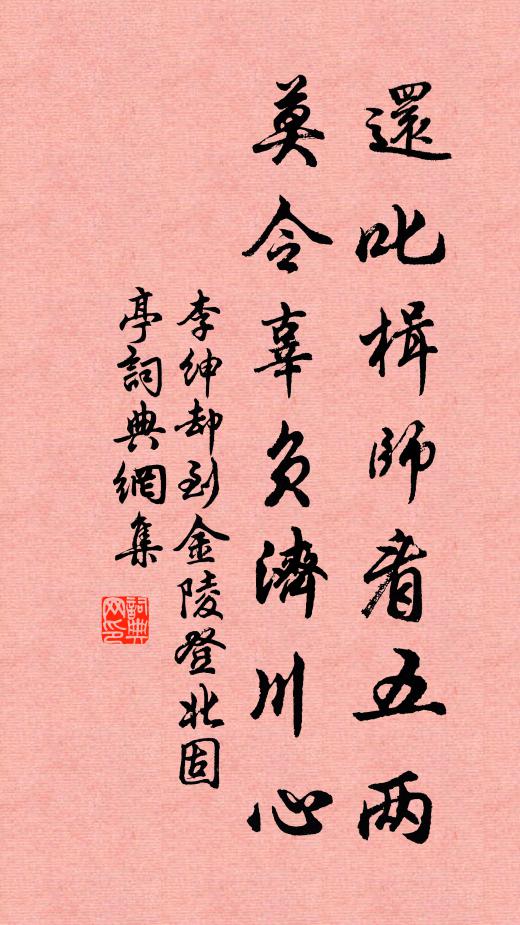 還叱楫師看五两
莫令辜負濟川心
李绅却到金陵登北固
亭詞典網集
詞典
网印